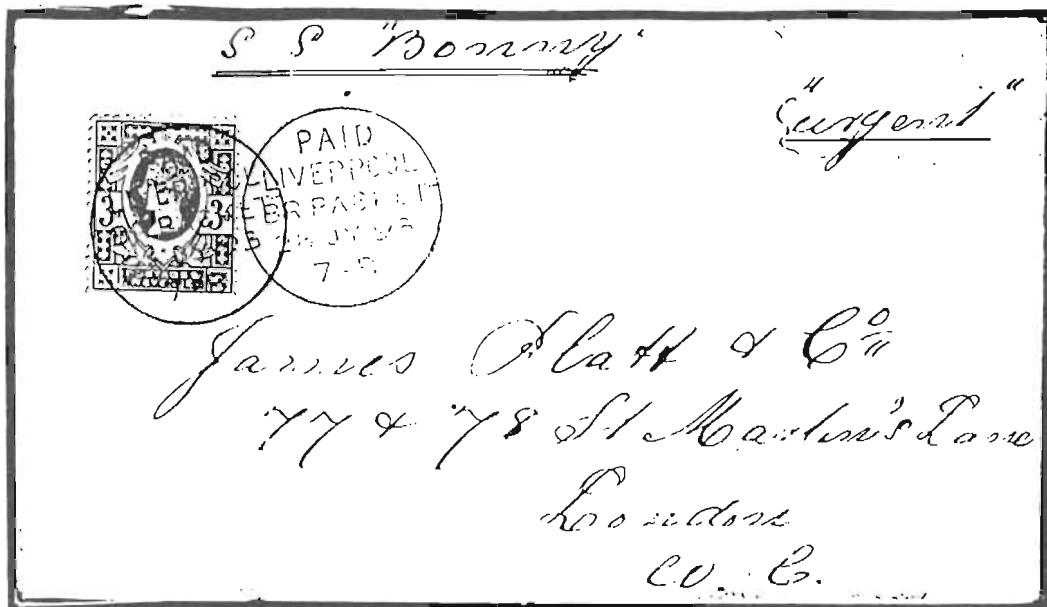 S S "Bonny"
"urgent"
PAID
LIVERPOOL
BR PACKET
JY
7
3d 3d
James Platt & Co
77 & 78 St Martin's Lane
London
W. C.